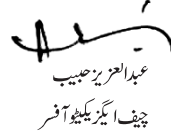 عبدالعزیز حبیب
چیف ایگزیکیٹو آفسر